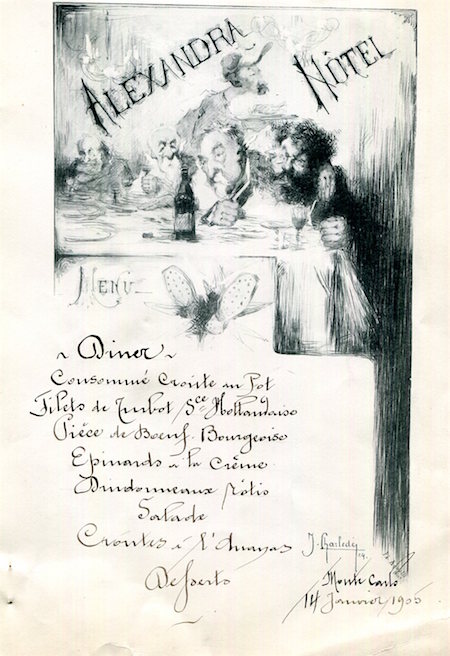 ALEXANDRA HÔTEL
MENU
~ Diner ~
Consommé Croûte au Pot
Filets de Turbot Sce Hollandaise
Pièce de Boeuf Bourgeoise
Epinards à la Crème
Dindonneaux rôtis
Salade
Croutes à l'Ananas
Desserts
Monte Carlo
14 Janvier 1905